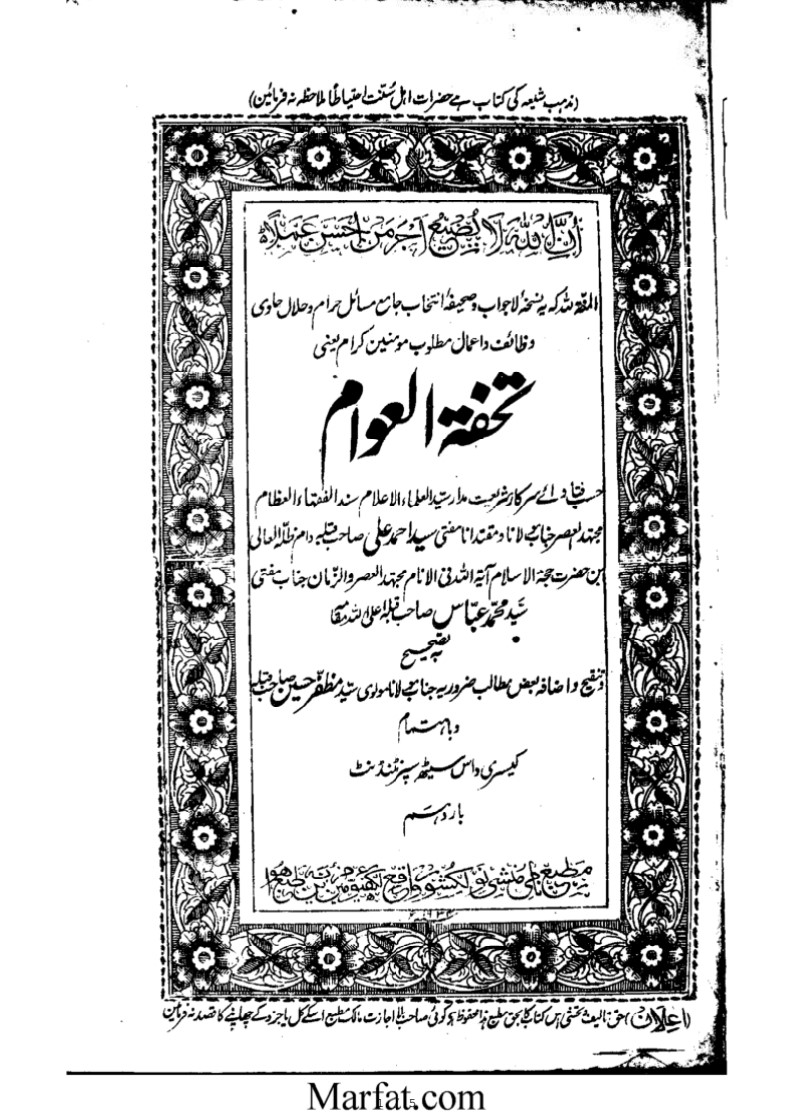 (مذہب شیعہ کی کتاب ہے حضرات اہل سنت احتیاطاً ملاحظہ نہ فرمائیں)
ان اللہ لا یضیع اجر من احسن عملاً
المنۃ للہ کہ یہ نسخۂ لاجواب و صحیفۂ انتخاب جامع مسائل حرام و حلال حاوی
وظائف و اعمال مطلوب مومنین کرام یعنی
تحفۃ العوام
حسب فتاوائے سرکار شریعت مدار سید العلماء الاعلام سند الفقہاء العظام
مجتہد العصر جناب مولانا و مقتدانا مفتی سید احمد علی صاحب قبلہ دام ظلہ العالی
ابن حضرت حجۃ الاسلام آیۃ اللہ فی الانام مجتہد العصر والزمان جناب مفتی
سید محمد عباس صاحب قبلہ اعلی اللہ مقامہ
بہ تصحیح
و تنقیح و اضافہ بعض مطالب ضروریہ جناب مولانا مولوی سید مظفر حسین صاحب قبلہ
و باہتمام
کیسری داس سیٹھ سپرنٹنڈنٹ
بار دہم
مطبع نامی منشی نولکشور واقع لکھنؤ میں طبع ہوا
(اعلان) حق تالیف و تحشی اس کتاب کا بحق مطبع ہذا محفوظ ہے کوئی صاحب بلا اجازت مالک مطبع اسکے کل یا جزو کے چھاپنے کا قصد نہ فرمائیں
Marfat.com